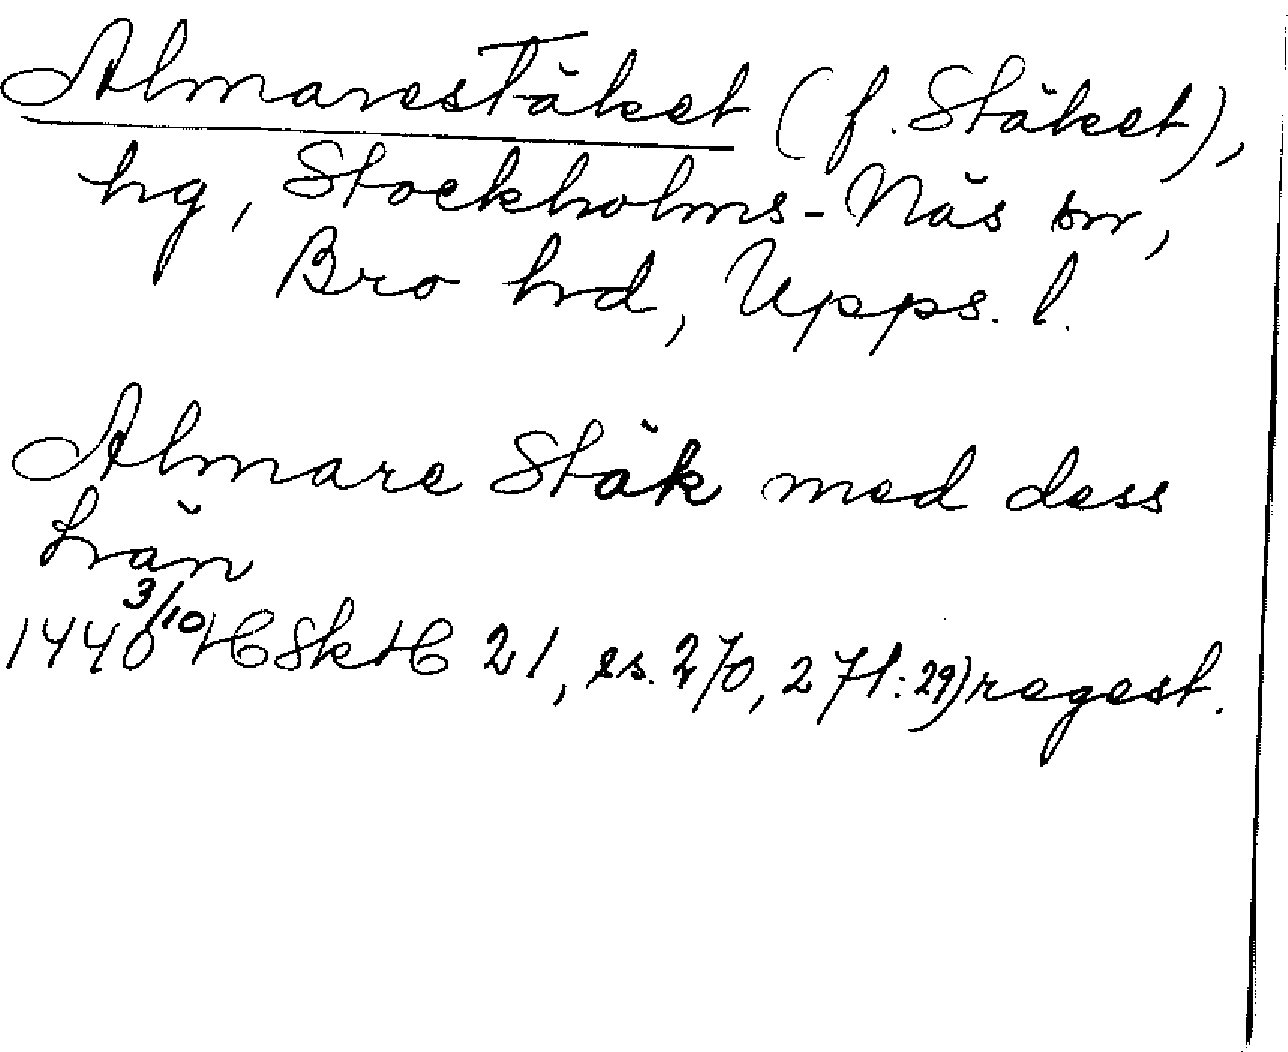 Almarestäket (f. Stäket),
hg, Stockholms-Näs sn,
Bro hd, Upps. l.
Almare Stäk med dess
län
1440 3/10 HSkH 21, s. 270, 271:29) regest.